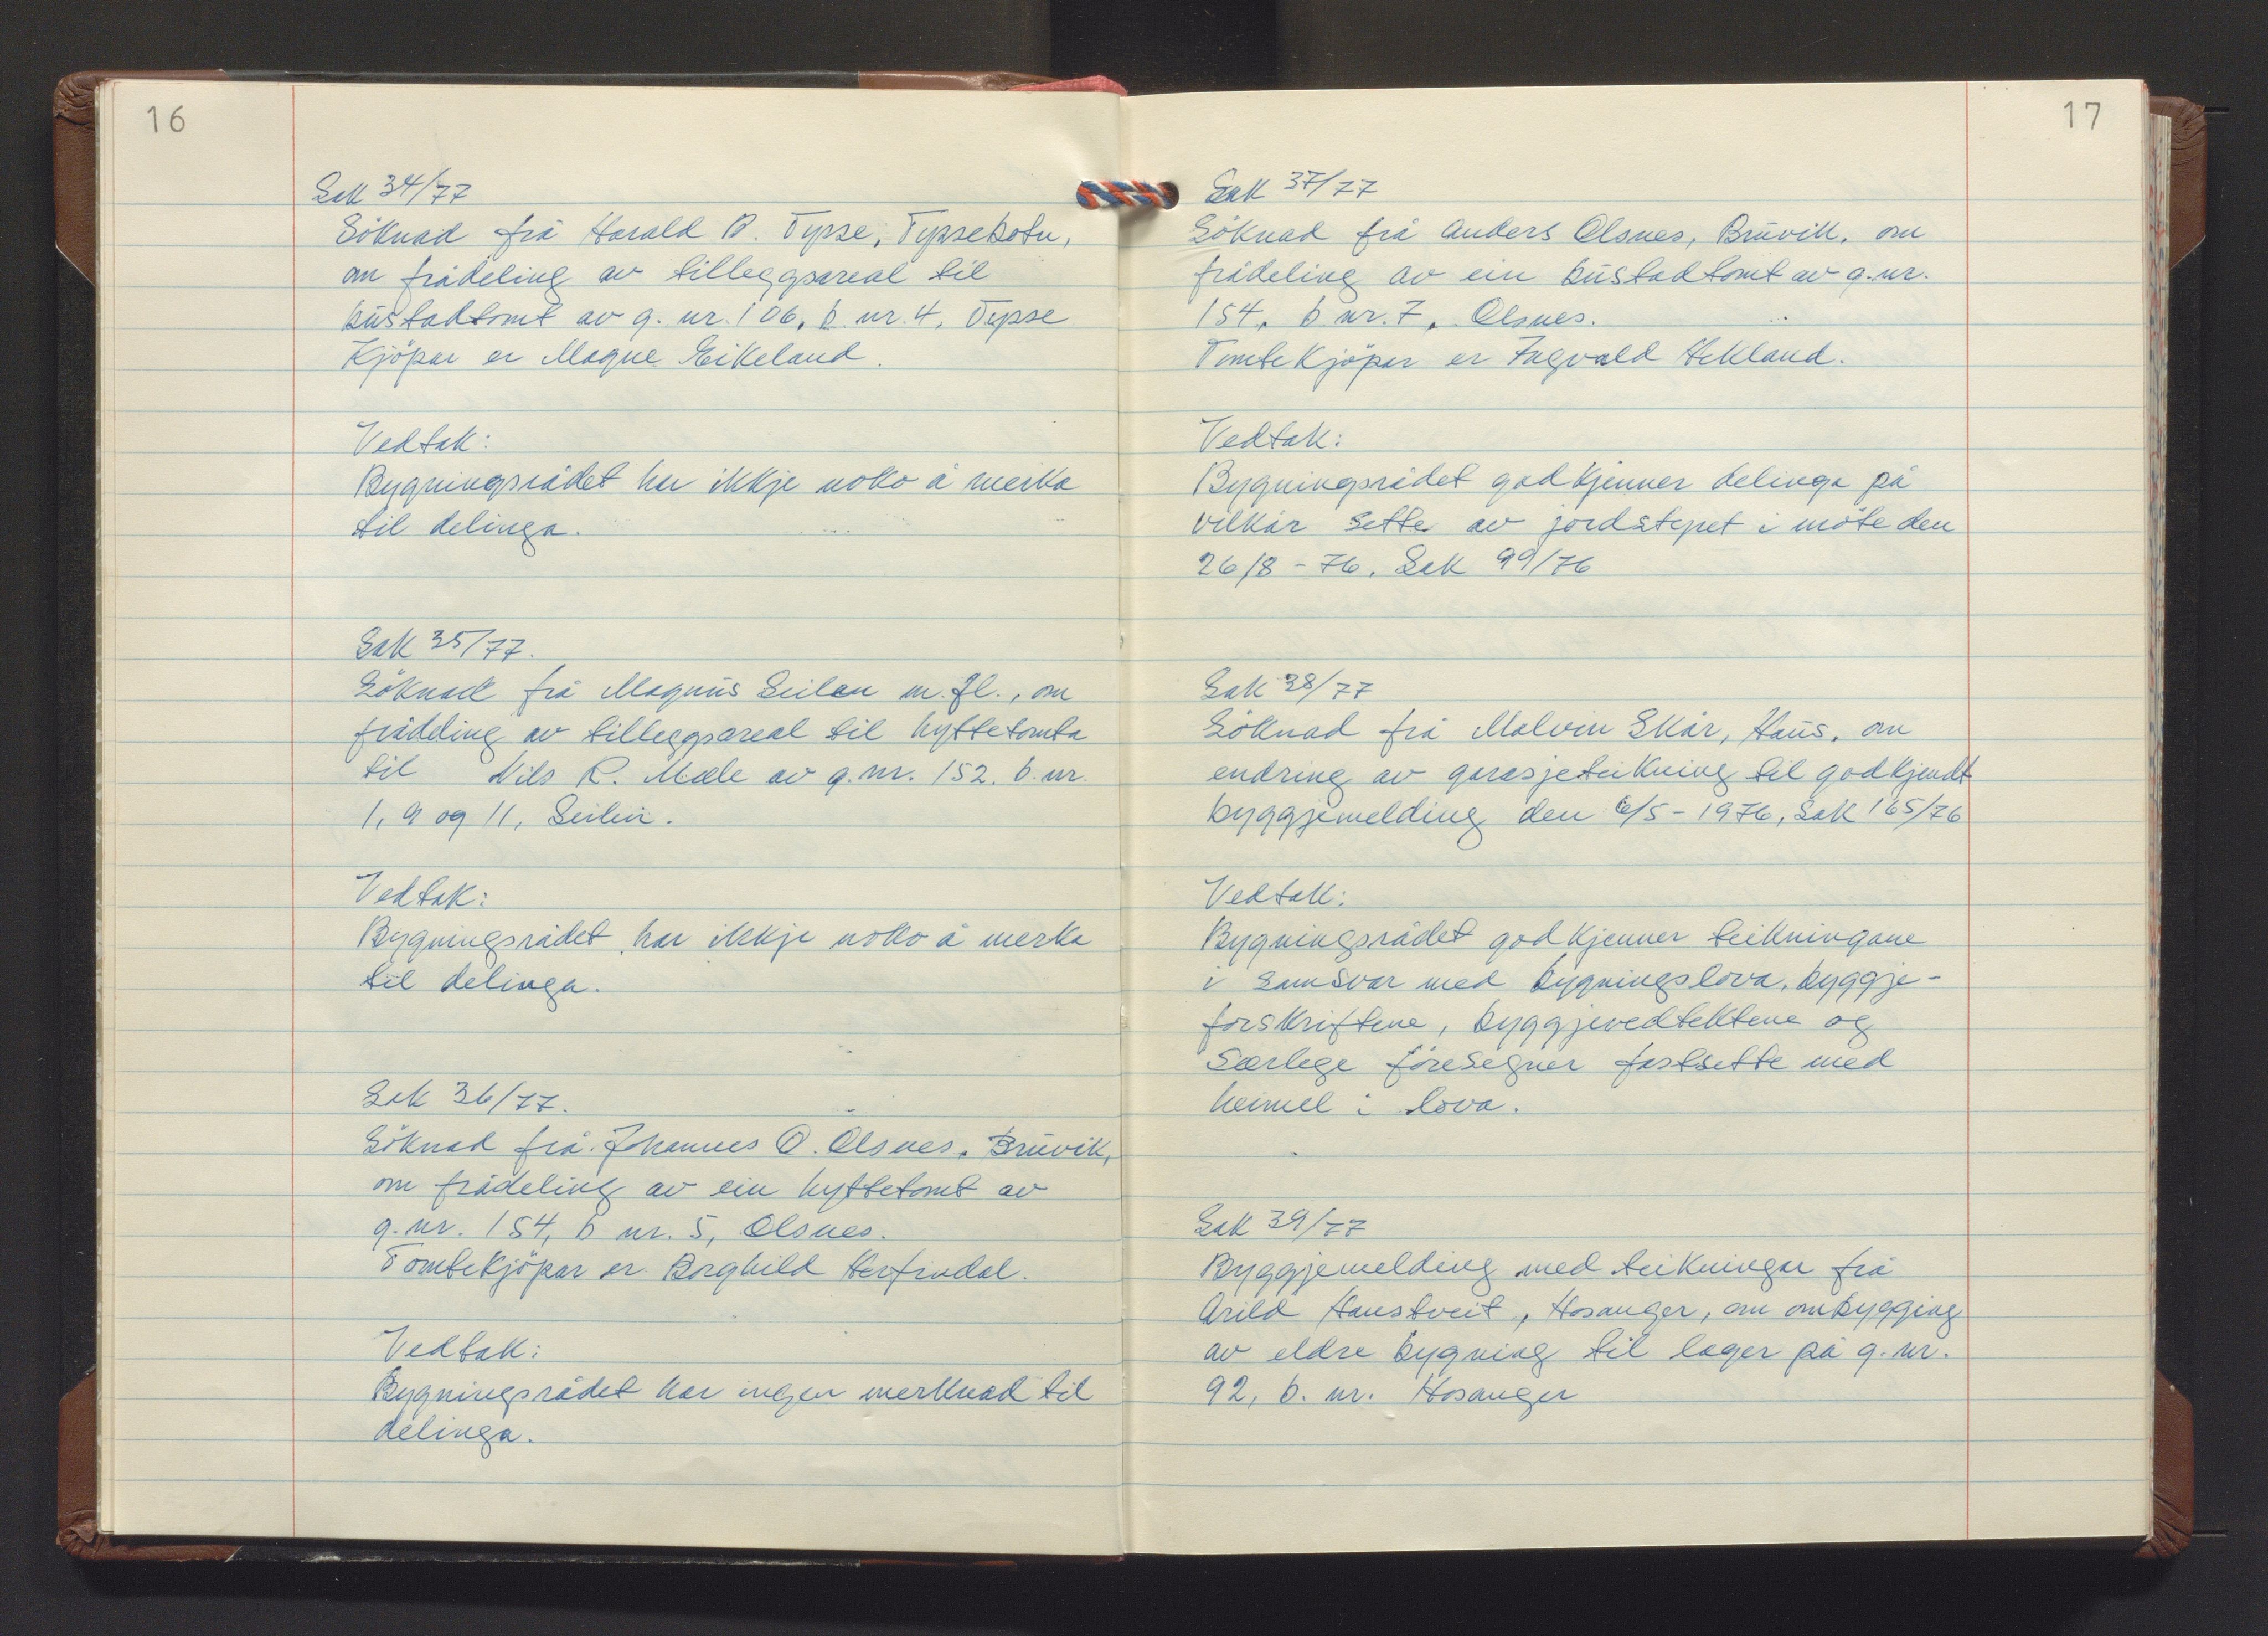 16
Sak 34/77
Söknad frå Harald B. Tysse, Tyssebotn,
om frådeling av tilleggsareal til
bustadtomt av g. nr. 106, b. nr. 4, Tysse
Kjöpar er Magne Eikeland.
Vedtak:
Bygningsrådet har ikkje noko å merka
til delinga.
Sak 35/77.
Söknad frå Magnus Seilen m. fl., om
frådeling av tilleggsareal til hyttetomta
til Nils R. Mæle av g. nr. 152. b. nr.
1, 9 og 11, Seilin.
Vedtak:
Bygningsrådet har ikkje noko å merka
til delinga.
Sak 36/77.
Söknad frå Johannes O. Olsnes, Bruvik,
om frådeling av ein hyttetomt av
g. nr. 154, b nr. 5, Olsnes.
Tomtekjöpar er Borghild Herfindal.
Vedtak:
Bygningsrådet har ingen merknad til
delinga.
17
Sak 37/77
Söknad frå Anders Olsnes, Bruvik, om
frådeling av ein bustadtomt av g. nr.
154, b nr. 7, Olsnes.
Tomtekjöpar er Ingvald Hekland.
Vedtak:
Bygningsrådet godkjenner delinga på
vilkår sette av jordstyret i möte den
26/8 - 76, Sak 99/76
Sak 38/77
Söknad frå Malvin Skår, Haus, om
endring av garasjeteikning til godkjendt
byggjemelding den 6/5 - 1976, Sak 165/76
Vedtak:
Bygningsrådet godkjenner teikningane
i samsvar med bygningslova, byggje-
forskriftene, byggjevedtektene og
særlege föresegner fastsette med
heimel i lova.
Sak 39/77
Byggjemelding med teikningar frå
Arild Haustveit, Hosanger, om ombygging
av eldre bygning til lager på g. nr.
92, b. nr. Hosanger